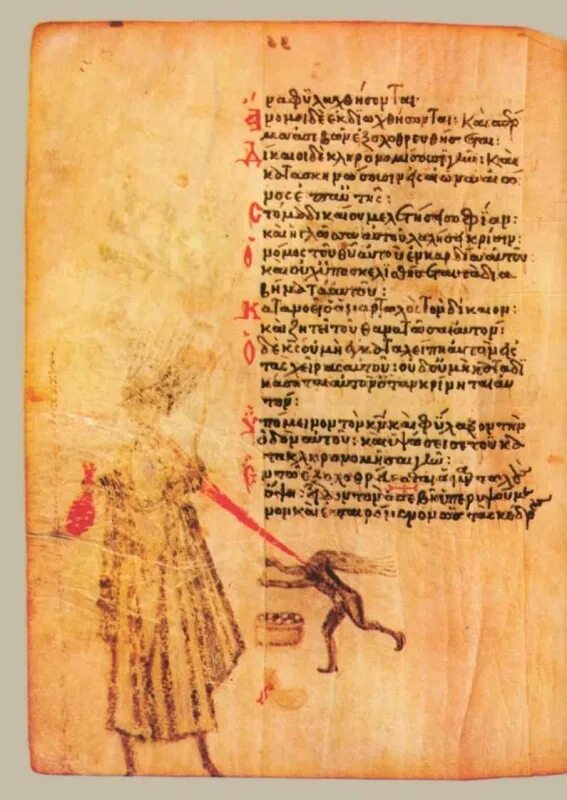 να φυλαχθήσονται·
Ἄνομοι δὲ ἐκδιωχθήσονται: καὶ σπέρ
μα ἀσεβῶν ἐξολοθρευθήσεται:
Δίκαιοι δὲ κληρονομήσουσι γῆν: καὶ
κατασκηνώσουσιν εἰς αἰῶνα αἰῶ
νος ἐπ αὐτῆς:
Στόμα δικαίου μελετήσει σοφίαν:
καὶ ἡ γλῶσσα αὐτοῦ λαλήσει κρίσιν:
Ὁ νόμος τοῦ θυ αὐτοῦ ἐν καρδία αὐτοῦ
καὶ οὐχ ὑποσκελισθήσεται τὰ δια
βήματα αὐτοῦ:
Κατανοεῖ ὁ ἁμαρτωλὸς τὸν δίκαιον:
καὶ ζητεῖ τοῦ θανατῶσαι αὐτόν:
Ὁ δὲ κς οὐ μὴ ἐγκαταλείπη αὐτὸν εἰς
τὰς χεῖρας αὐτοῦ: οὐδ οὐ μὴ καταδι
κάσηται αὐτὸν ὅταν κρίνηται αὐ
τῶ:
Ὑπόμεινον τὸν κν καὶ φύλαξον τὴν
ὁδὸν αὐτοῦ: καὶ ὑψώσει σε τοῦ κα
τακληρονομῆσαι γῆν:
ὄψη: εἶδον τὸν ἀσεβῆ ὑπερυψούμε
νον καὶ ἐπαιρόμενον ὡς τὰς κέδρ